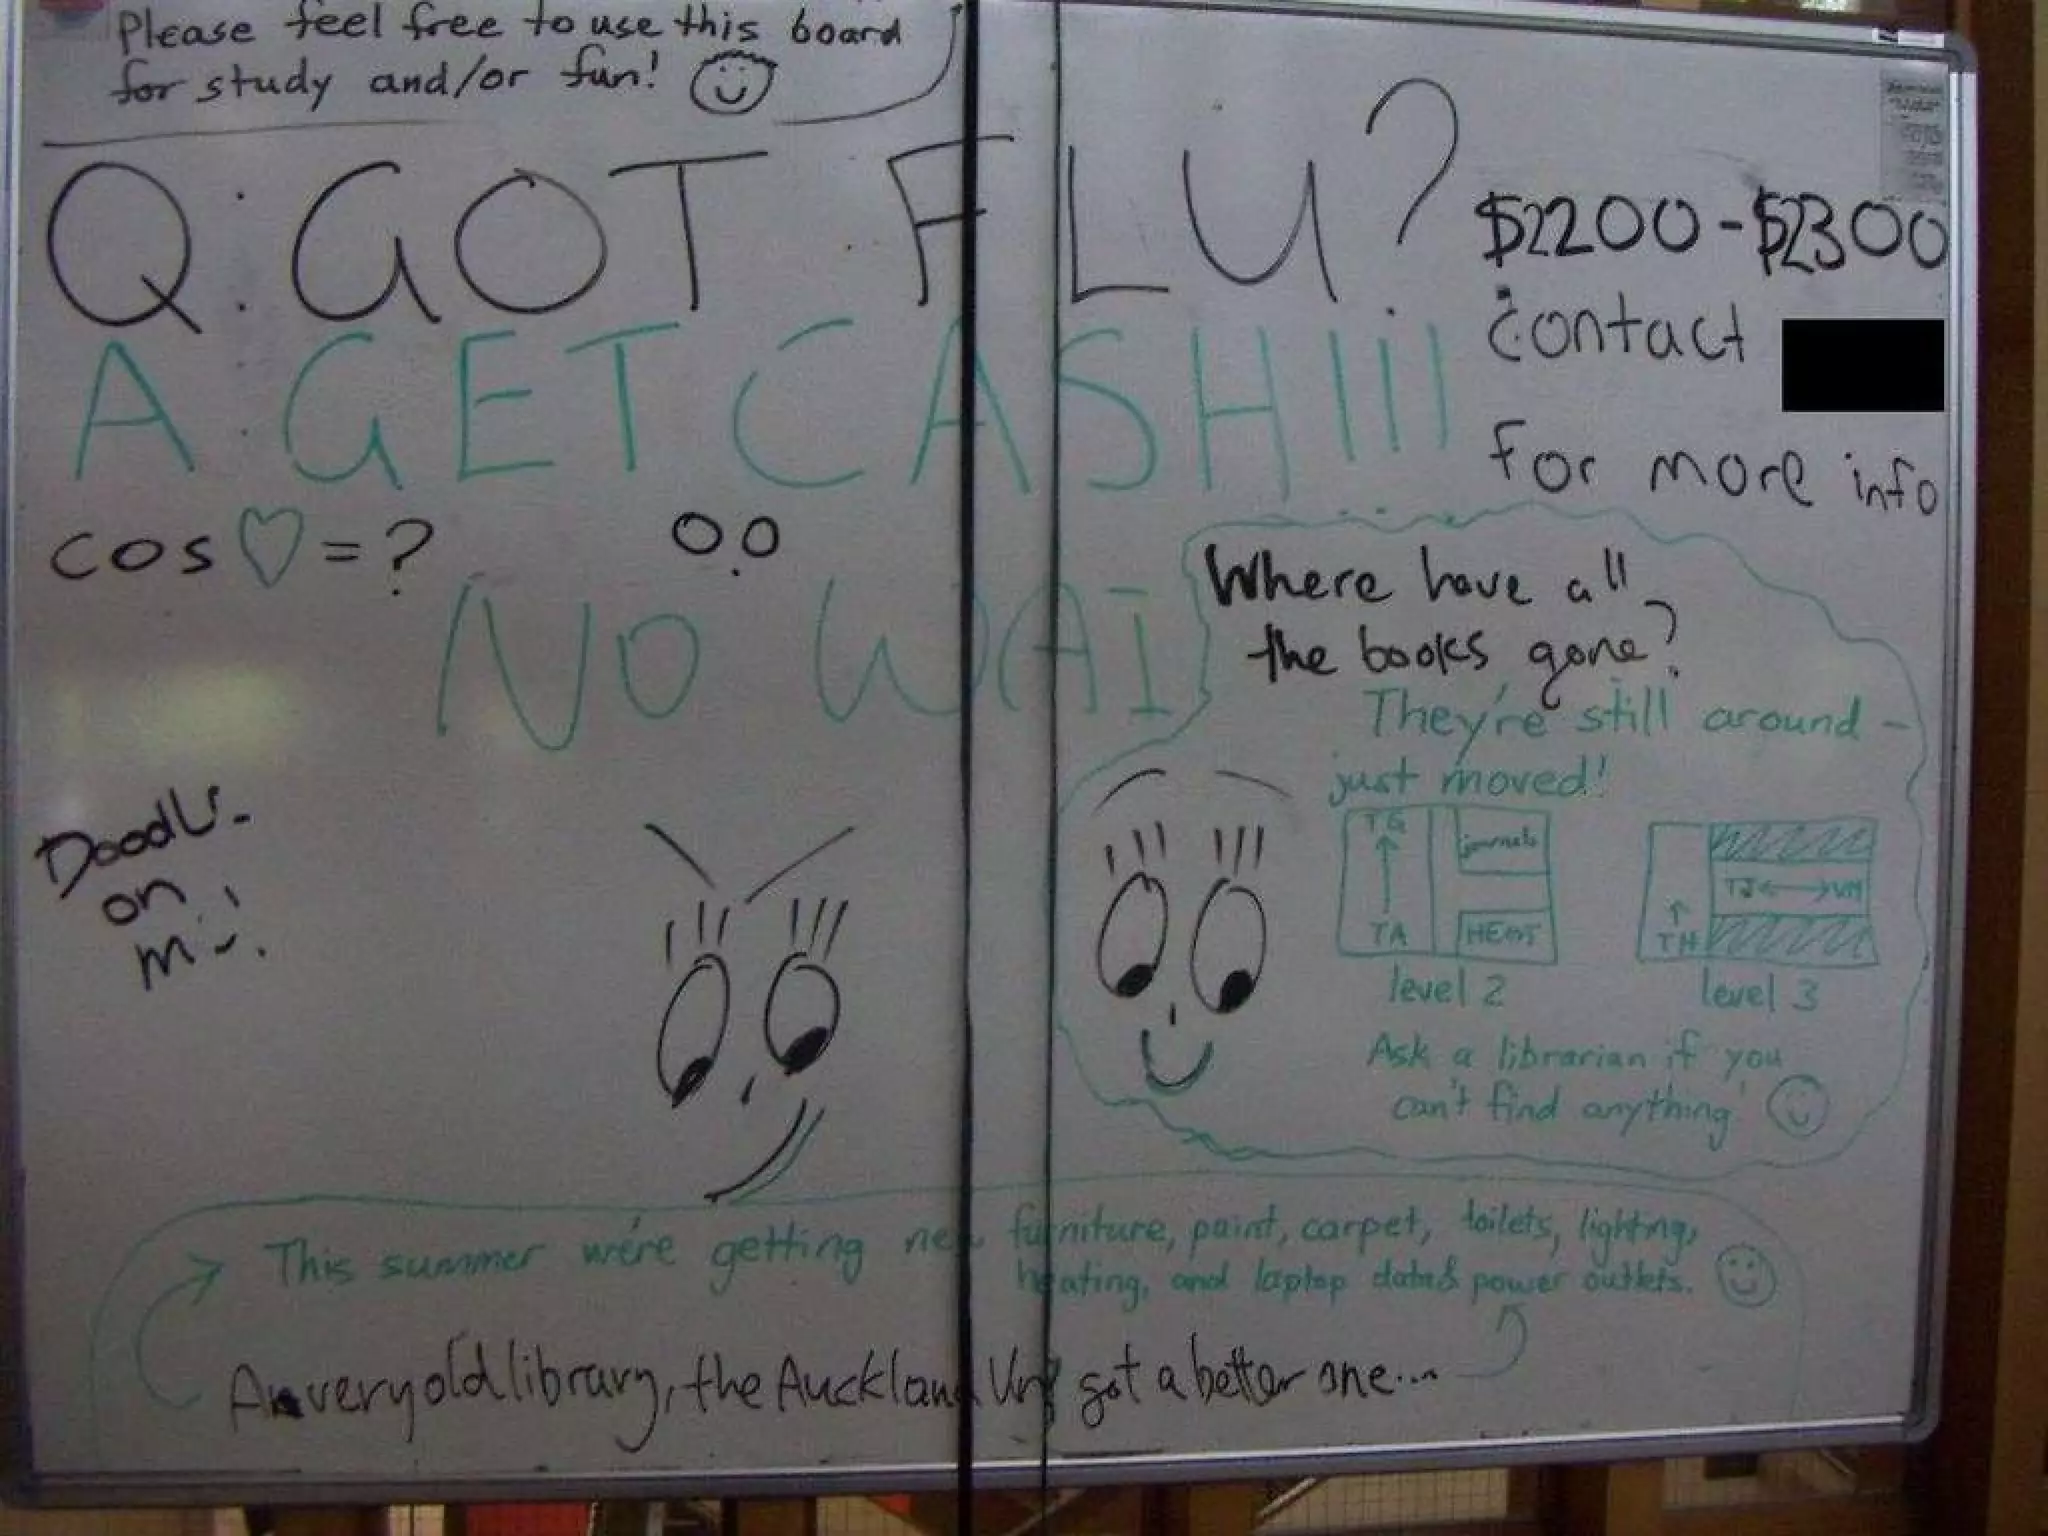 Please feel free to use this board
for study and/or fun!
Q: GOT FLU?
A: GET CASH!!!
$2200-$2300
contact
for more info
cos ♡ = ?
O.O
NO WAI
Where have all
the books gone?
They're still around -
just moved!
TG
TA
journals
level 2
TH
TJ ↔ VM
level 3
Ask a librarian if you
can't find anything
Doodle
on
me!
This summer we're getting new furniture, paint, carpet, toilets, lighting,
heating, and laptop data & power outlets.
A very old library, the Auckland Uni got a better one...